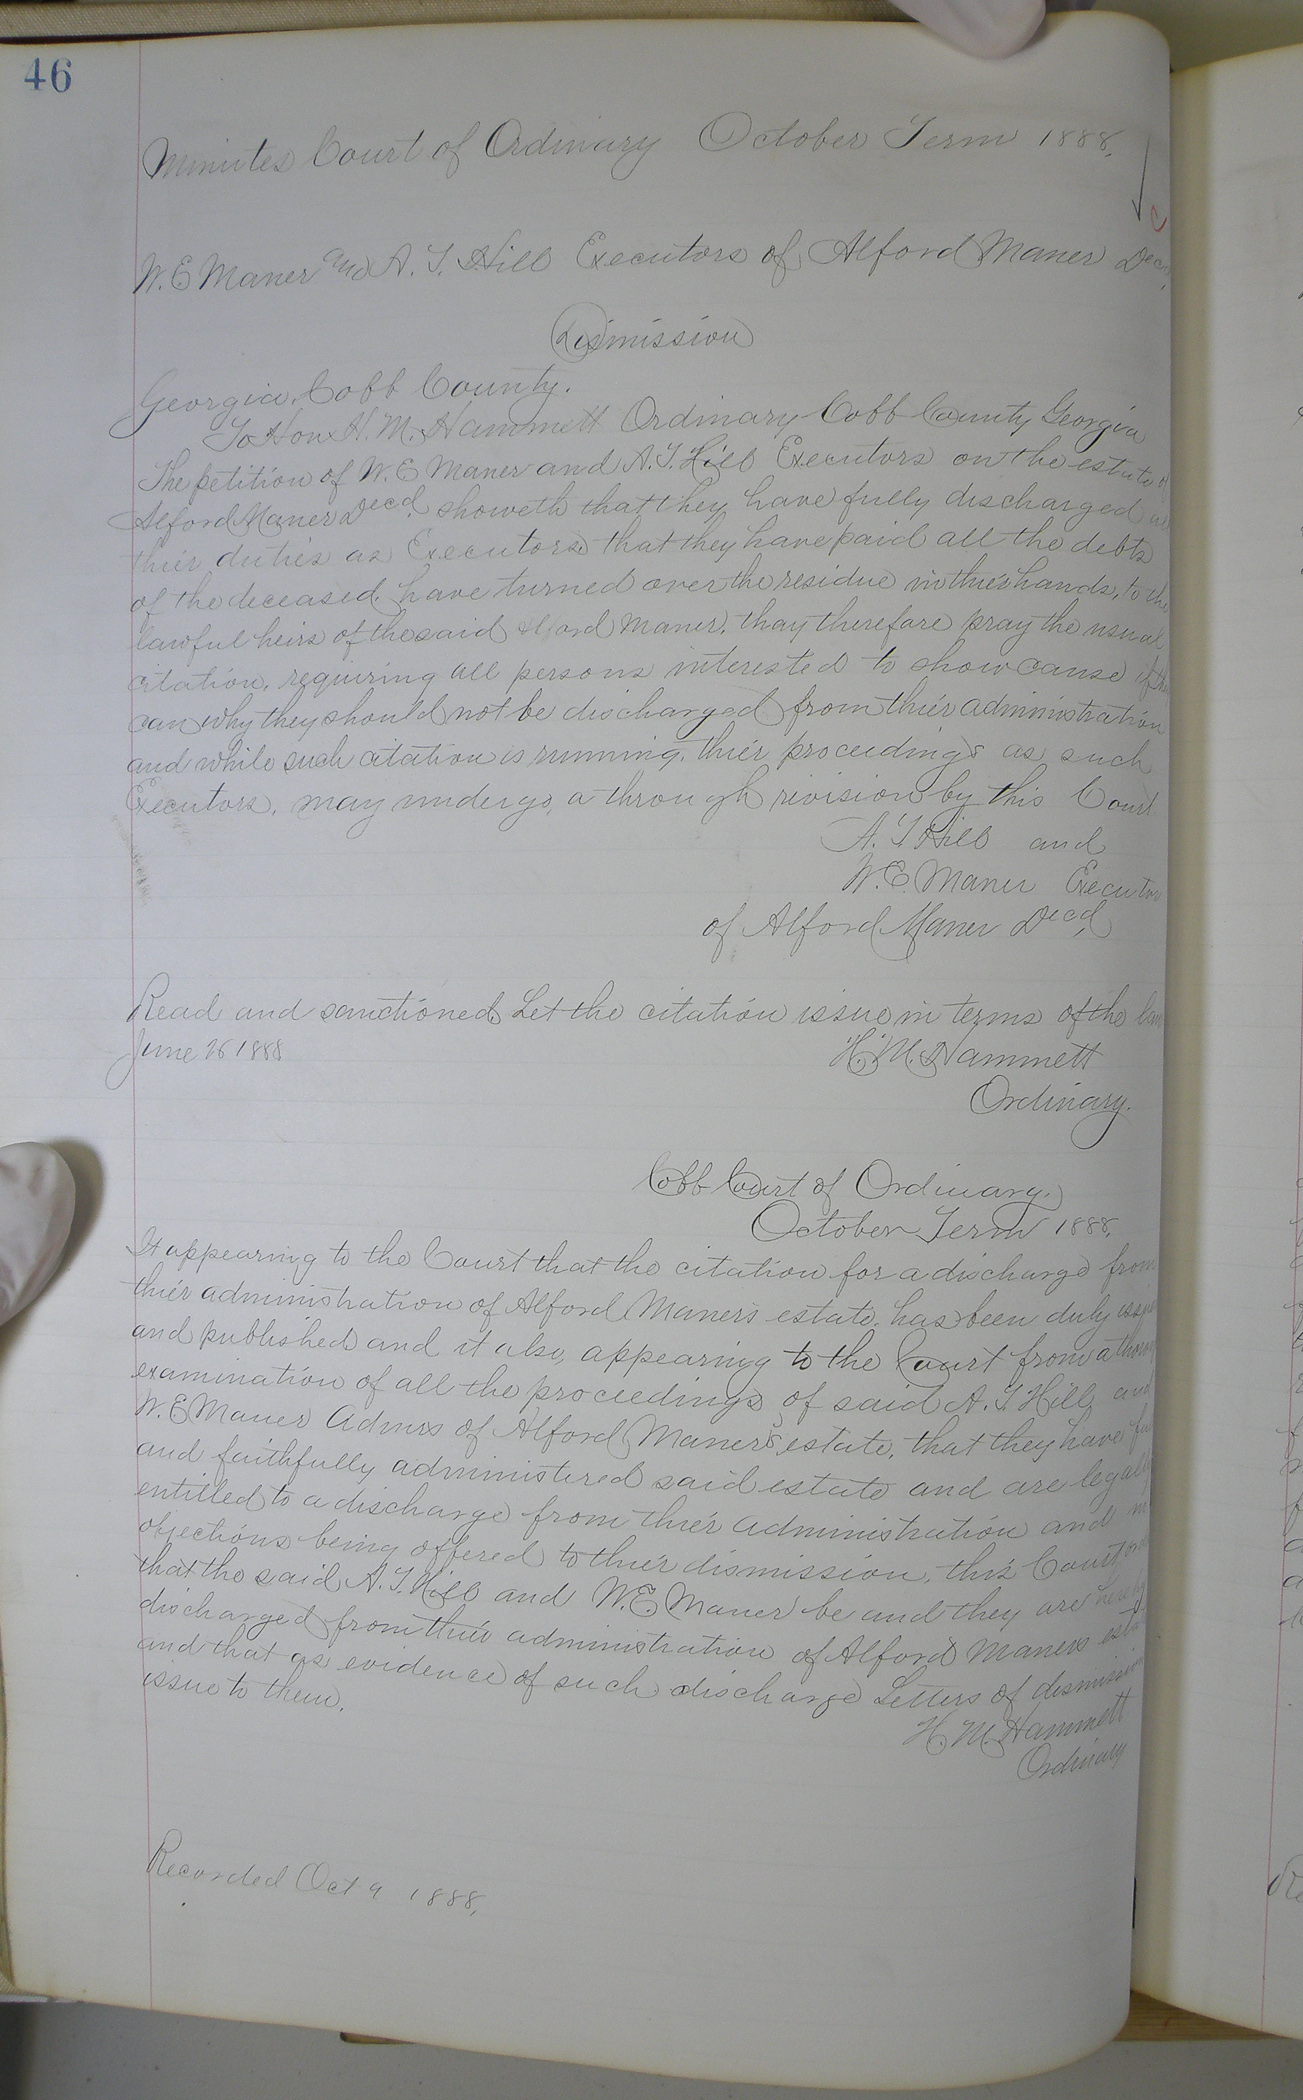 46
Minutes Court of Ordinary October Term 1888,
W. E Maner and A. T. Hill Executors of Alford Maner Decd,
Dismission
Georgia, Cobb County.
To Hon H. M. Hammett Ordinary Cobb County Georgia
The petition of W. E Maner and A. T. Hill Executors on the estate of
Alford Maner Decd, showeth that they have fully discharged all
thier duties as Executors, that they have paid all the debts
of the deceased. have turned over the residue in thier hands, to the
lawful heirs of the said Alford Maner. thay therefore pray the usual
citation, requiring all persons interested to show cause if they
can why they should not be discharged from thier administration
and while such citation is running, thier proceedings as such
Executors, may undergo, a through rivision by this Court
A. T Hill and
W. E. Maner Executors
of Alford Maner Decd,
Read and sanctioned, Let the citation issue in terms of the law
June 26 1888
H. M. Hammett
Ordinary.
Cobb Court of Ordinary.
October Term 1888,
It appearing to the Court that the citation for a discharge from
thier administration of Alford Maner's estate, has been duly
and published and it also, appearing to the Court from a
examination of all the proceedings of said A. T Hill, and
W. E Maner Admrs of Alford Maner's estate, that they have
and faithfully administered said estate and are legally
entitled to a discharge from thier administration and no
objections being offered to thier dismission, this Court
that the said A. T. Hill and W. E. Maner be and they are hereby
discharged from thier administration of Alford Maners
and that as evidence of such discharge Letters of dismission
issue to them.
H. M. Hammett
Ordinary
Recorded Oct 9 1888,